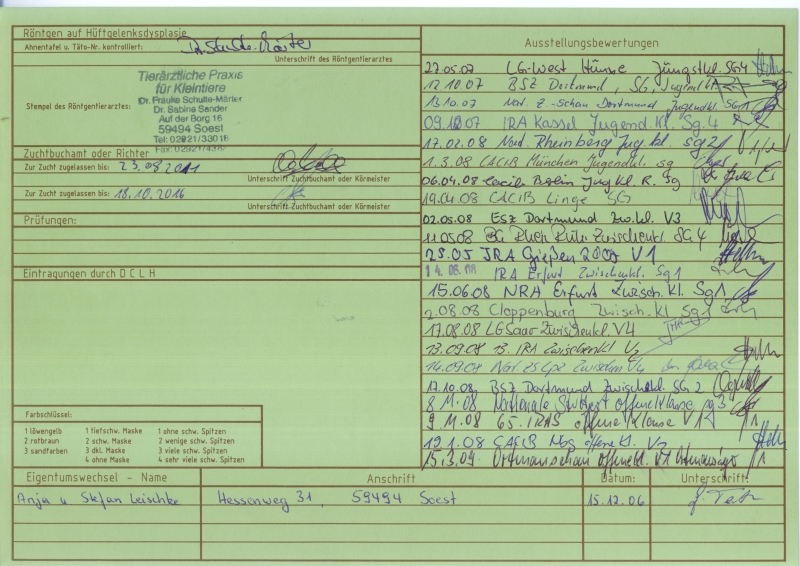 Röntgen auf Hüftgelenksdysplasie
Ahnentafel u. Täto-Nr. kontrolliert:
Unterschrift des Röntgentierarztes
Tierärztliche Praxis
für Kleintiere
Dr. Frauke Schulte-Märter
Dr. Sabine Sander
Auf der Borg 16
59494 Soest
Tel: 02921/33016
Stempel des Röntgentierarztes:
Zuchtbuchamt oder Richter
Zur Zucht zugelassen bis: 23.08.2011
Unterschrift Zuchtbuchamt oder Körmeister
Zur Zucht zugelassen bis: 18.10.2016
Unterschrift Zuchtbuchamt oder Körmeister
Prüfungen:
Eintragungen durch D C L H
Farbschlüssel:
1 löwengelb 1 tiefschw. Maske 1 ohne schw. Spitzen
2 rotbraun 2 schw. Maske 2 wenige schw. Spitzen
3 sandfarben 3 dkl. Maske 3 viele schw. Spitzen
4 ohne Maske 4 sehr viele schw. Spitzen
Ausstellungsbewertungen
27.05.07 LG-West Hünxe Jüngstkl. SG4
12.10.07 BSZ Dortmund, SG, Jugendkl.
13.10.07 Dortmund Jugendkl. SG1
IRA Kassel Jugend.Kl. Sg. 4
17.02.08 Nord. Rheinberg Jug.kl. sg2
1.3.08 CACIB München Jugendkl. sg
06.04.08 Cacib Berlin Jug.Kl. R. Sg
19.04.08 CACIB Linge SG
02.05.08 ESZ Dortmund Zw.kl. V3
11.05.08 Zwischenkl. SG4
25.05 IRA Gießen V1
14.06.08 IRA Erfurt Zwischenkl. Sg1
15.06.08 NRA Erfurt Zwisch.Kl. Sg1
2.08.08 Cloppenburg Zwisch.Kl. Sg1
17.08.08 LG Saar Zwischenkl. V4
13.09.08 13. IRA Zwischenkl V2
14.09.08 Zwischen V4
17.10.08 BSZ Dortmund Zwischkl. SG2
8 M.08 Nationale Stuttgart offene Klasse sg3
9 M.08 65. IRAS offene Klasse V1
CACIB Nbg offene kl. V2
15.3.09. Ortmannschau offenekl. V1
Eigentumswechsel - Name Anschrift Datum: Unterschrift:
Anja u Stefan Leischke Hessenweg 31, 59494 Soest 15.12.06